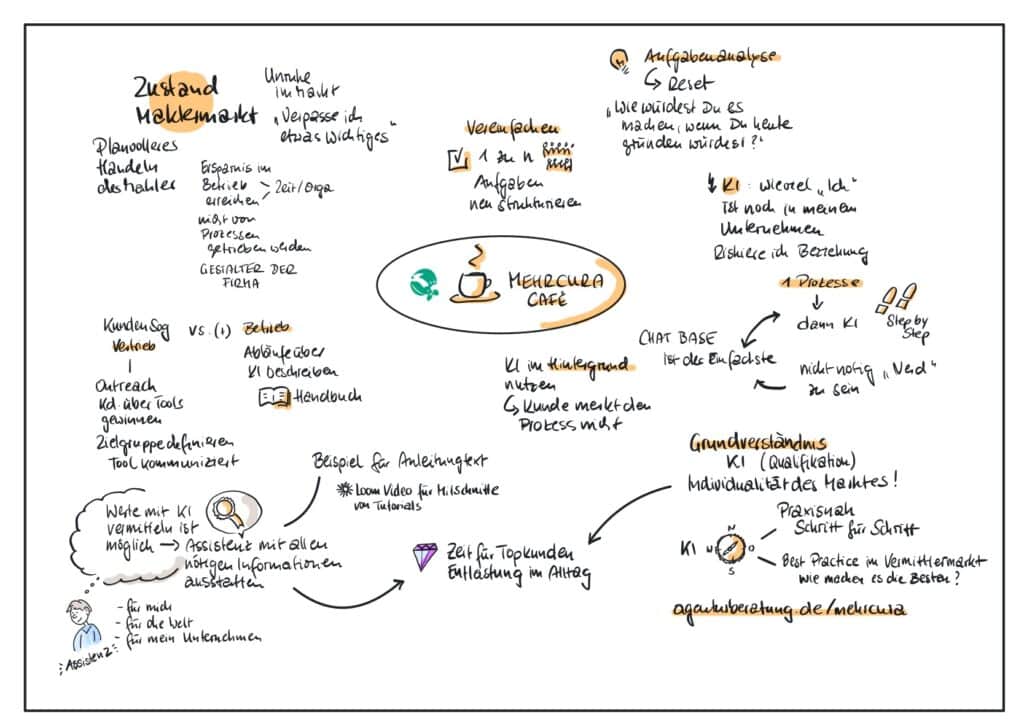 Zustand
Maklermarkt
Unruhe
im Markt
„Verpasse ich
etwas Wichtiges"
Planvolleres
Handeln
des Mahler
Ersparnis im
Betrieb
erreichen
Zeit/Orga
nicht von
Prozessen
getrieben werden
GESTALTER DER
FIRMA
Vereinfachen
1 zu n
Aufgaben
neu strukturieren
Aufgabenanalyse
↳ Reset
„Wie würdest Du es
machen, wenn Du heute
gründen würdest?"
KI: wieviel „Ich"
Ist noch in meinem
Unternehmen
Riskiere ich Beziehung
MEHRCURA
CAFÉ
1 Prozesse
↓
dann KI
Step by
Step
CHAT BASE
ist das Einfachste
nicht nötig „Nerd"
zu sein
KI im Hintergrund
nutzen
↳ Kunde merkt den
Prozess nicht
Kunden Sog
Vertrieb
vs. (1)
Betrieb
Abläufe über
KI beschreiben
Handbuch
Outreach
Kd. über Tools
gewinnen
Zielgruppe definieren
Tool kommuniziert
Beispiel für Anleitungtext
Loom Video für Mitschnitte
von Tutorials
Werte mit KI
vermitteln ist
möglich → Assistenz mit allen
nötigen Informationen
ausstatten
- für mich
- für die Welt
- für mein Unternehmen
Assistenz
Zeit für Topkunden
Entlastung im Alltag
Grundverständnis
KI (Qualifikation)
Individualität des Marktes!
Praxisnah
Schritt für Schritt
KI
N
W
O
S
Best Practice im Vermittlermarkt
Wie machen es die Besten?
agenturberatung.de/mehrcura